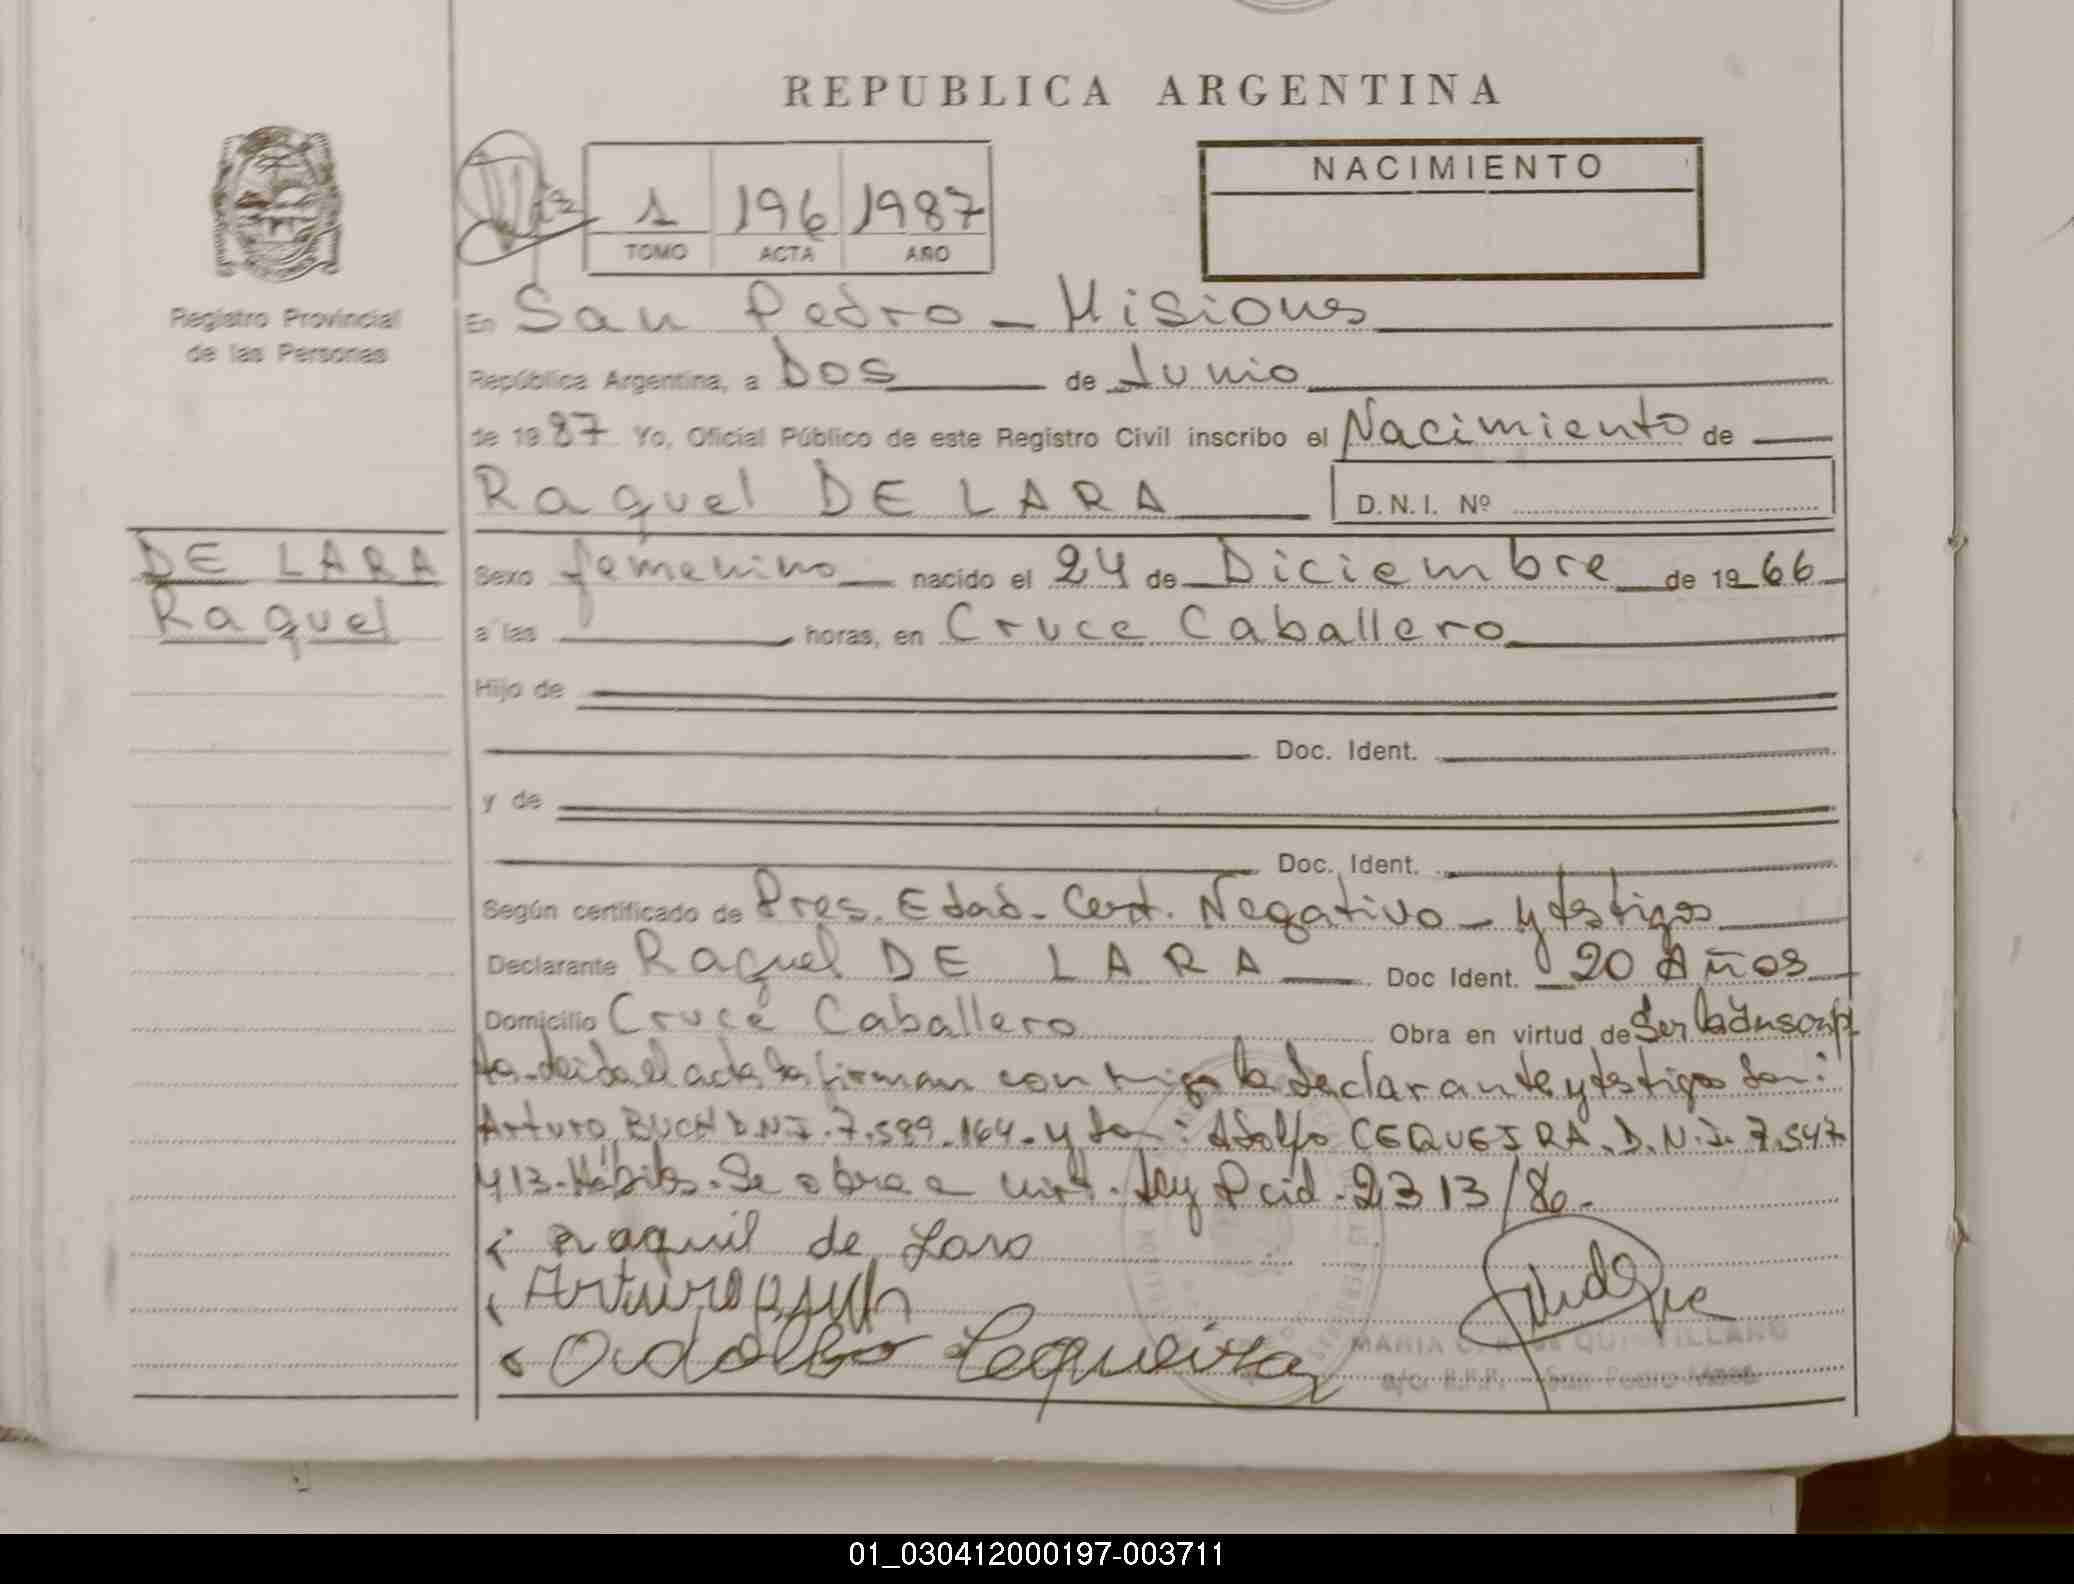 REPUBLICA ARGENTINA
NACIMIENTO
1 196 1987
TOMO ACTA AÑO
Registro Provincial
de las Personas
En San Pedro - Misiones
República Argentina, a Dos de Junio
de 1987 Yo, Oficial Público de este Registro Civil inscribo el Nacimiento de
Raquel DE LARA D.N.I. Nº
DE LARA
Raquel
Sexo femenino nacido el 24 de Diciembre de 1966
a las horas, en Cruce Caballero
Hijo de
Doc. Ident.
y de
Doc. Ident.
Según certificado de Pres. Edad - Cert. Negativo - y testigos
Declarante Raquel DE LARA Doc Ident. 20 Años
Domicilio Cruce Caballero Obra en virtud de Ser la Inscrip
ta. Leida el acta la firman con migo la declarante y testigos Don:
Arturo BUCH D.N.I. 7.599.164. y Don: Adolfo CEQUEIRA. D.N.I. 7.547
413. Hábiles. Se obra e virt. Ley Pcial. 2313/86.
Raquel de Lara
Arturo Buch
Adolfo Cequeira
MARIA QUINTILLANO
a/c. R.P.P. San Pedro Mnes.
01_030412000197-003711